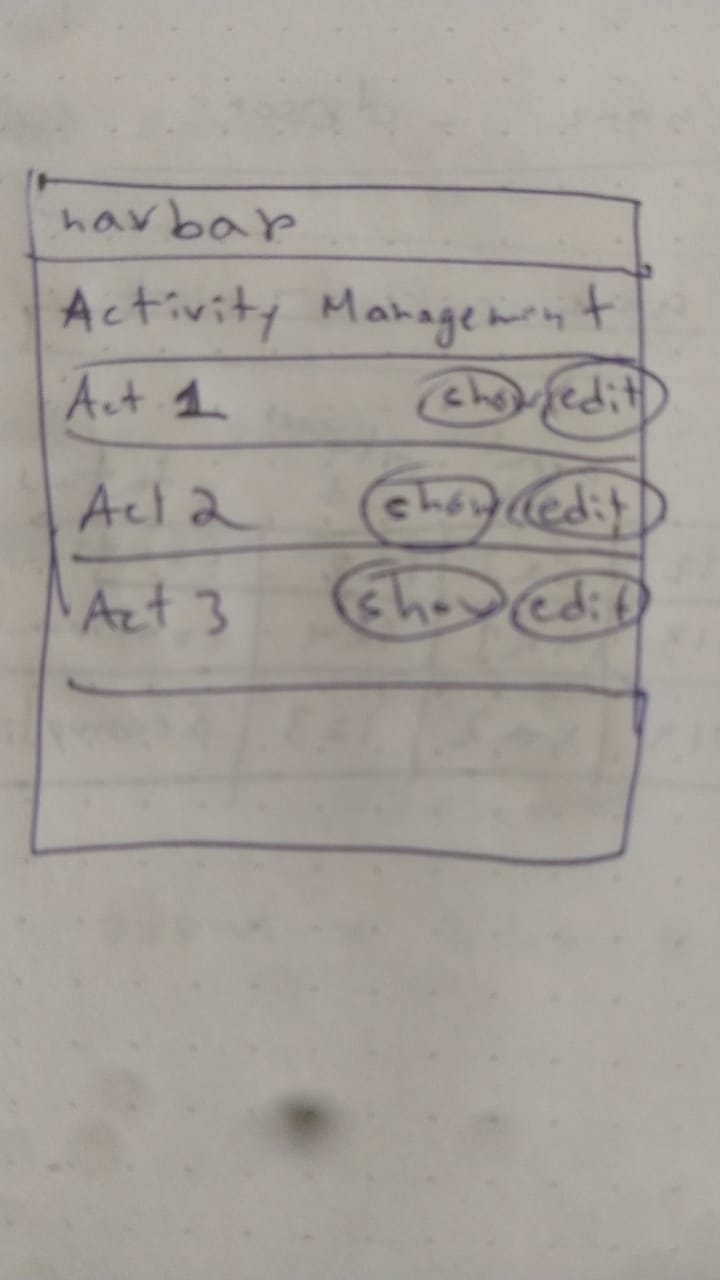 navbar
Activity Management
Act 1 show edit
Act 2 show edit
Act 3 show edit